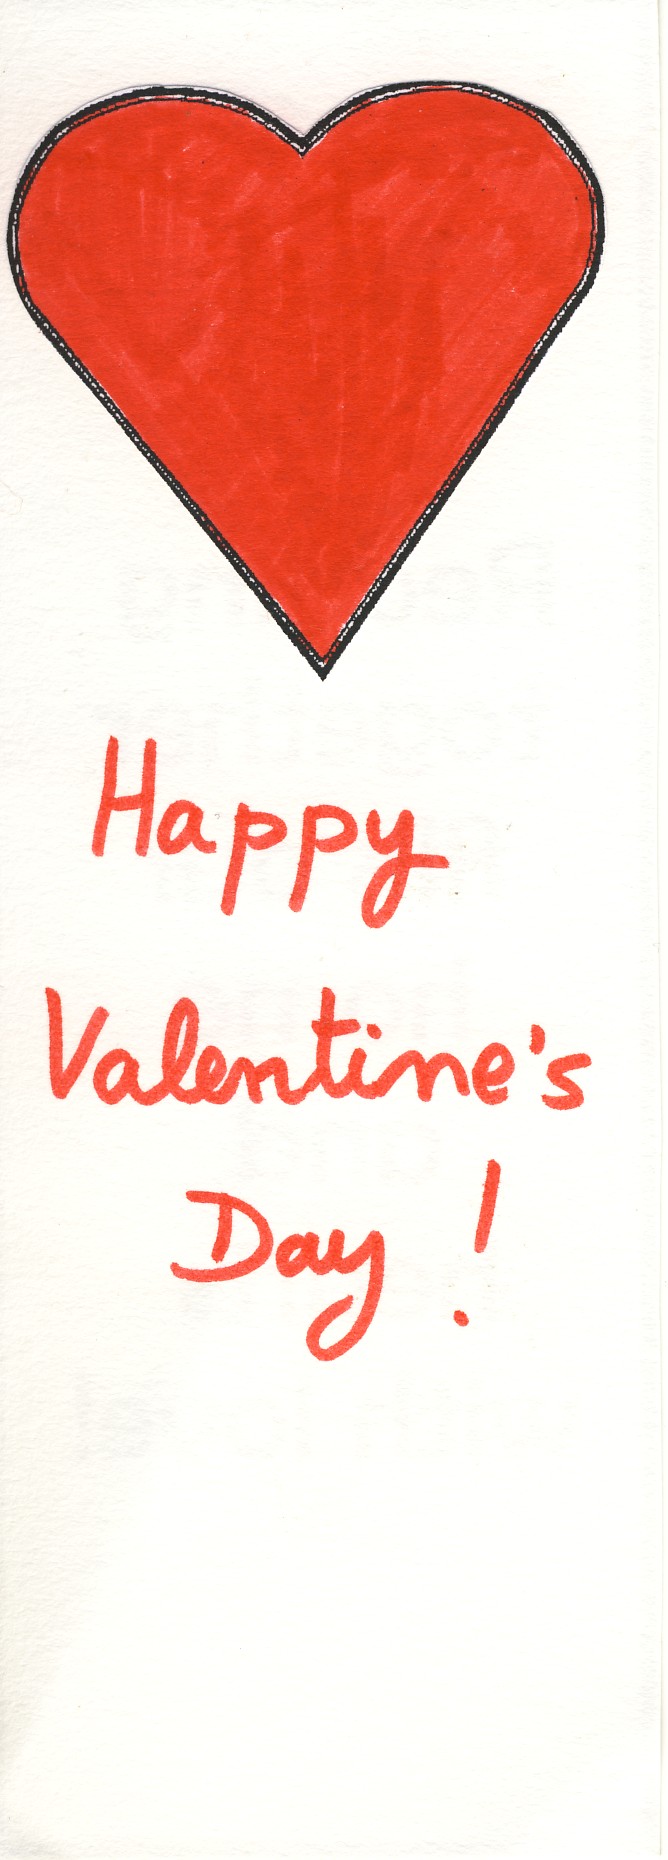 Happy
Valentine's
Day !